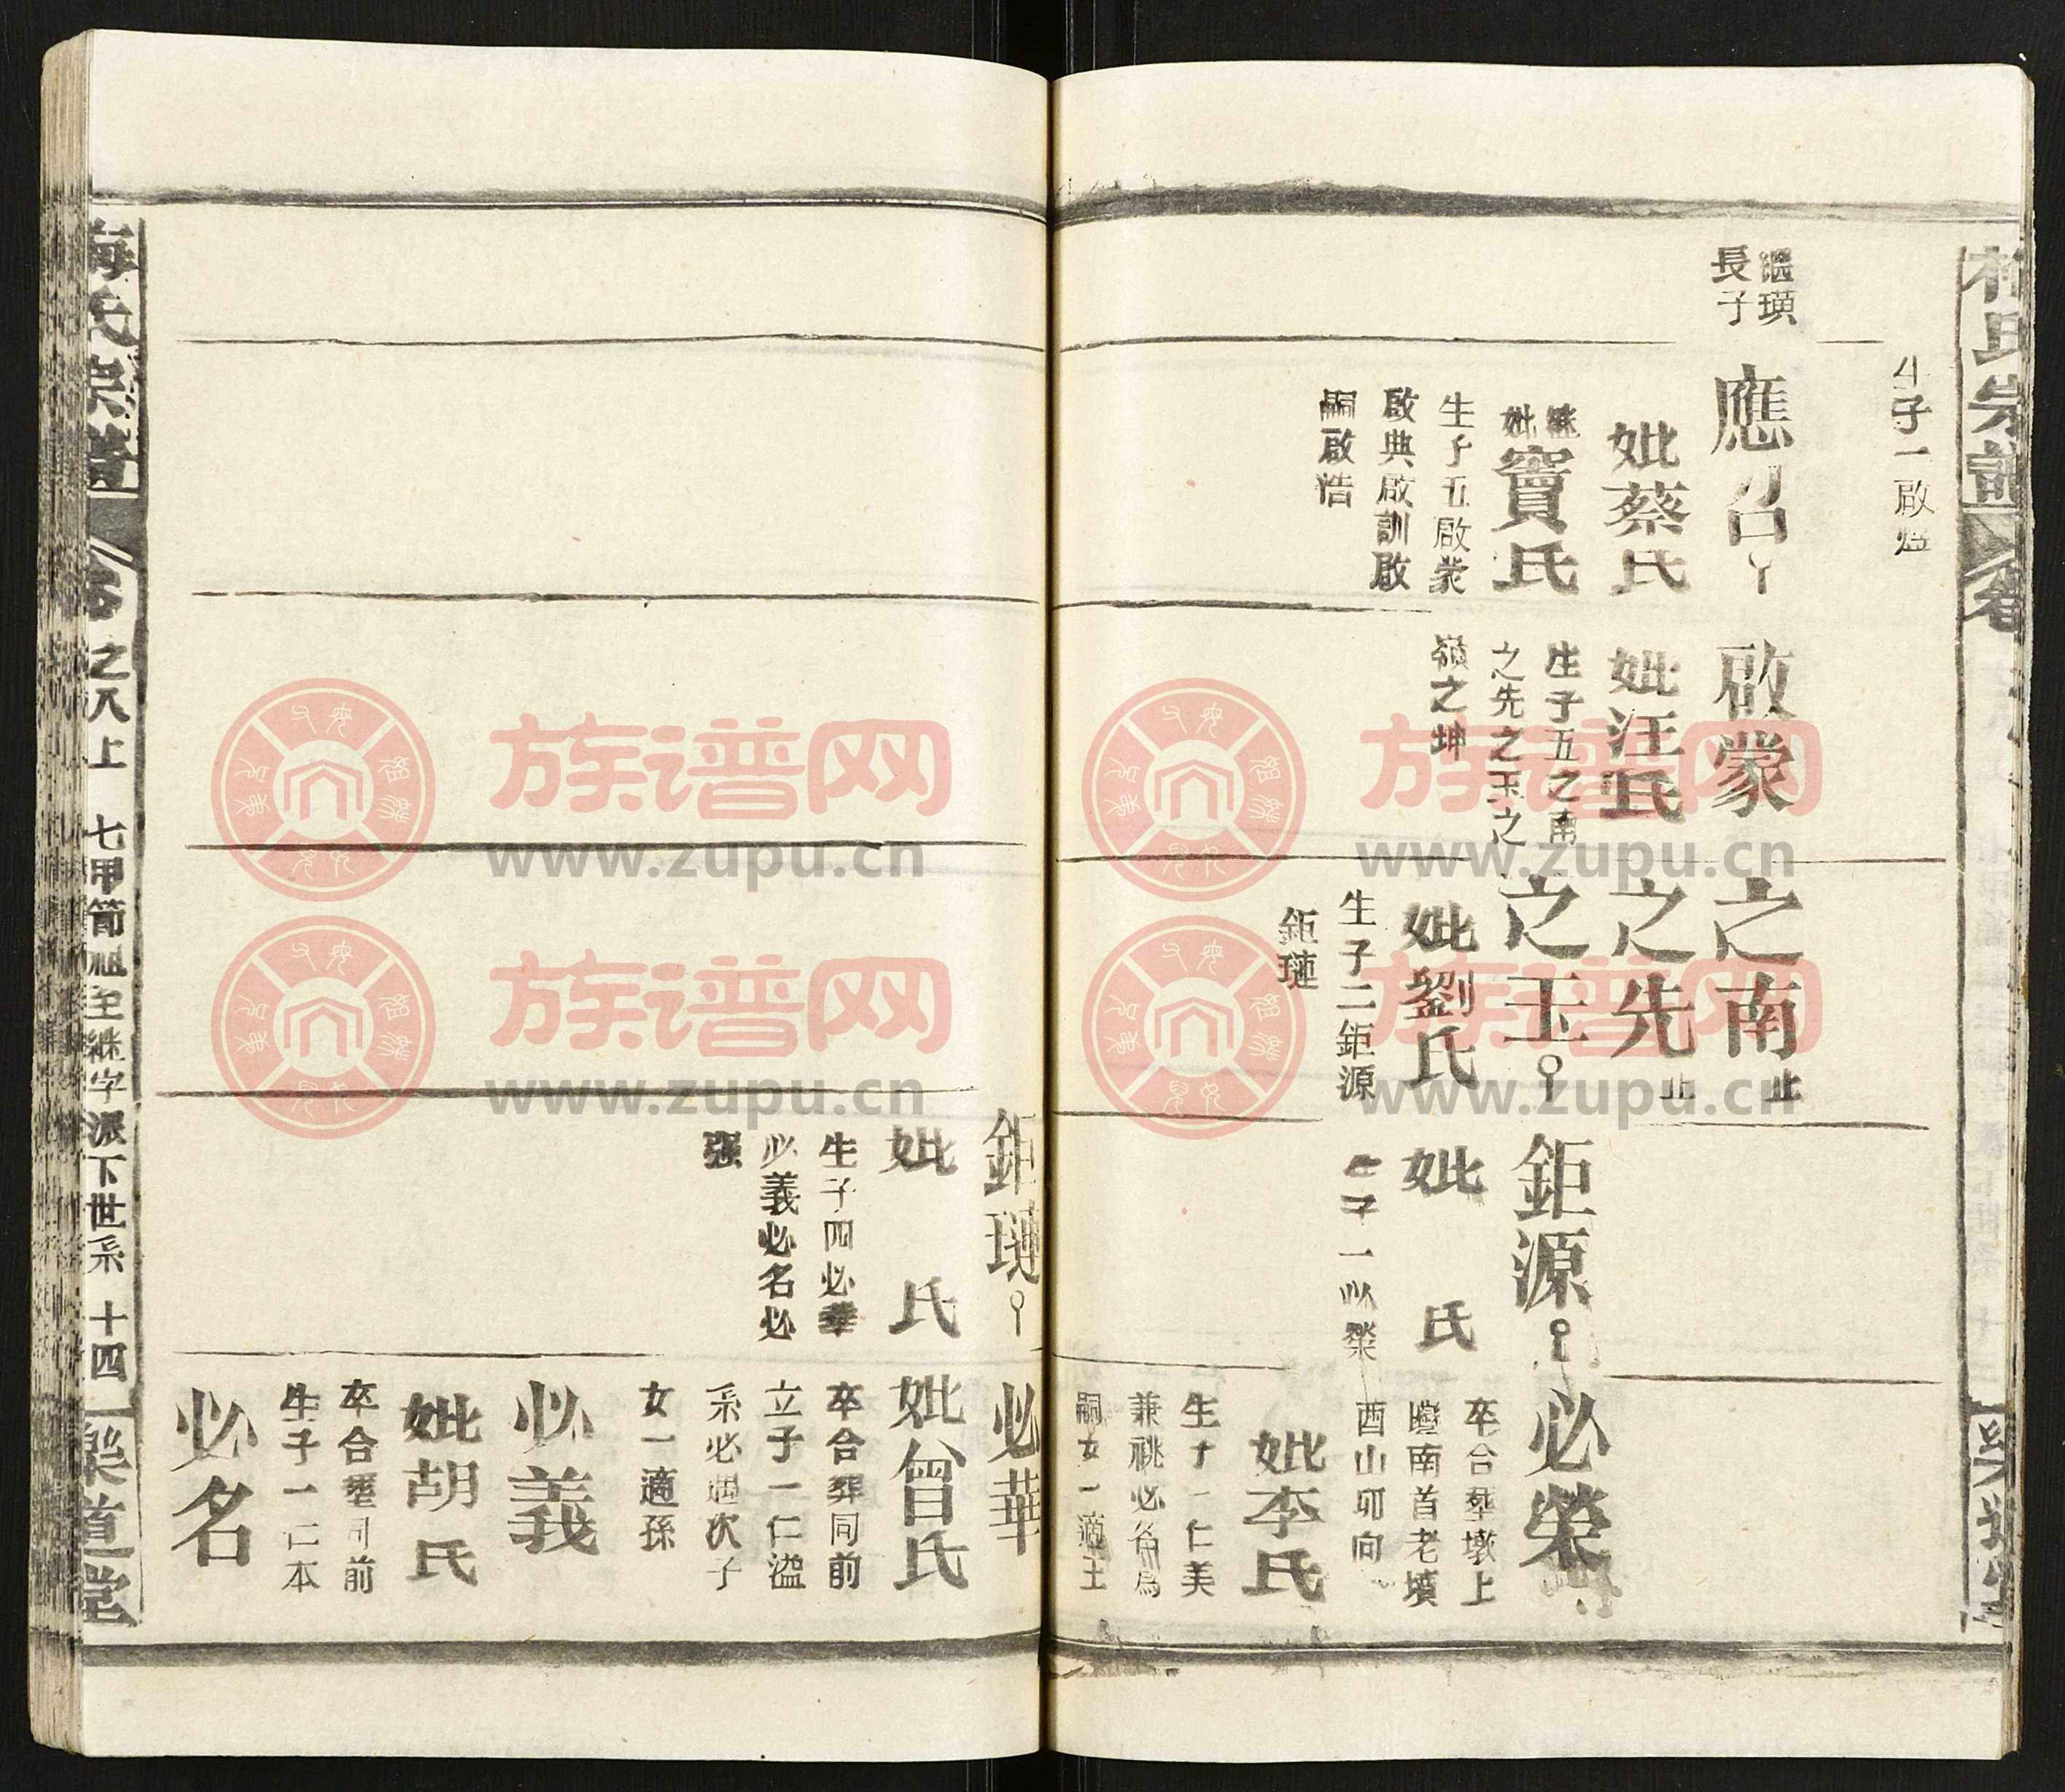 生子一啟煜
繼璜
長子
應召
妣蔡氏
繼妣竇氏
生子五啟蒙
啟典啟訓啟
嗣啟浩
啟蒙
妣汪氏
生子五之南
之先之玉之
嶺之坤
之南止
之先止
之玉
妣劉氏
生子二鉅源
鉅璉
鉅源
妣 氏
生子一必榮
必榮
卒合塟墩上
塆南首老墳
酉山卯向
妣李氏
生子一仁美
兼祧必名為
嗣女一適王
鉅璉
妣 氏
生子四必華
必義必名必
强
必華
妣曾氏
卒合葬同前
立子一仁溢
系必週次子
女一適孫
必義
妣胡氏
卒合塟同前
生子一仁本
必名
梅氏宗譜
卷之八上 七甲簡祖至繼字派下世系 十四
樂道堂
族谱网
www.zupu.cn
族谱网
www.zupu.cn
族谱网
www.zupu.cn
族谱网
www.zupu.cn